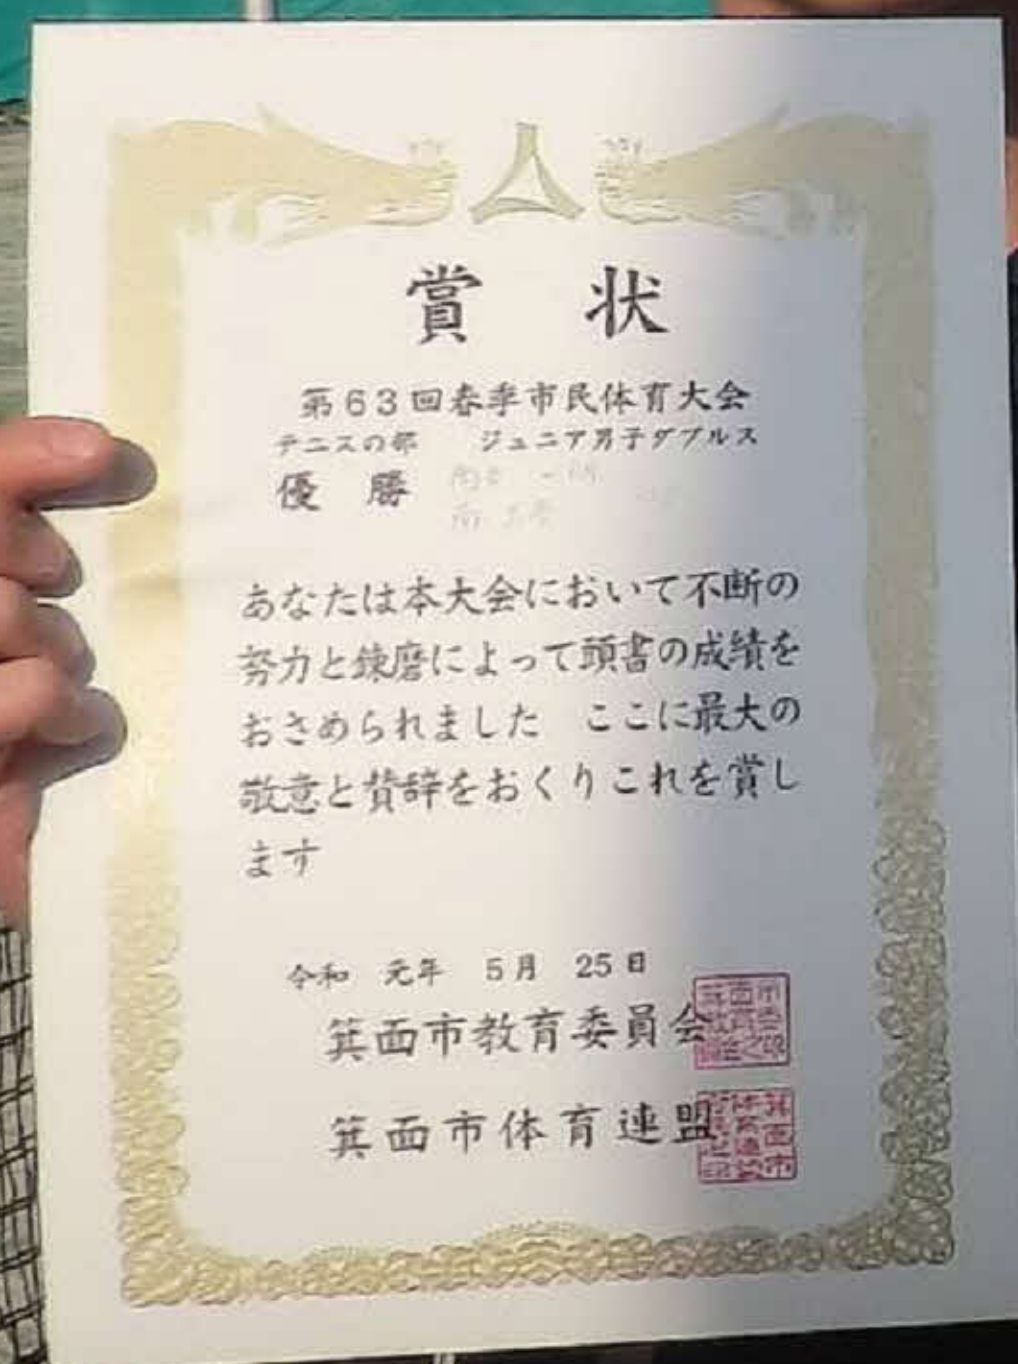 賞状
第63回春季市民体育大会
テニスの部 ジュニア男子ダブルス
優勝
あなたは本大会において不断の
努力と錬磨によって頭書の成績を
おさめられました ここに最大の
敬意と賛辞をおくりこれを賞し
ます
令和 元年 5月 25日
箕面市教育委員会
箕面市体育連盟